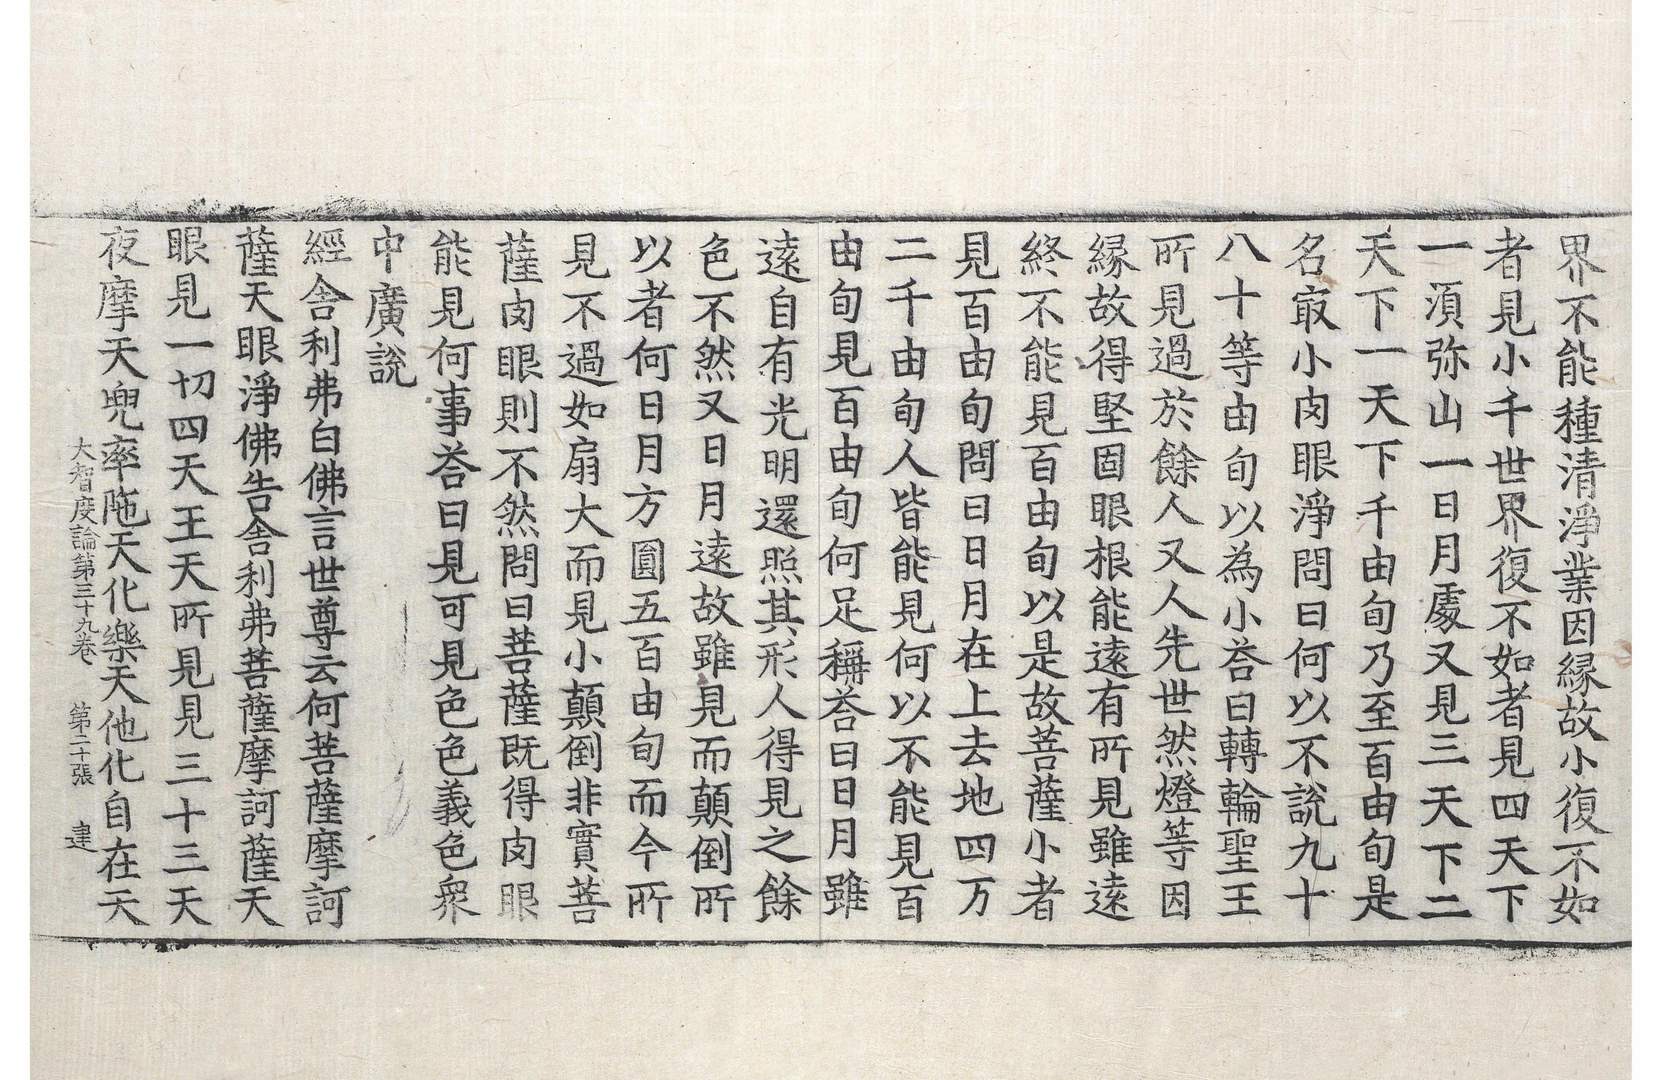 界不能種清淨業因縁故小復不如
者見小千世界復不如者見四天下
一湏弥山一日月處又見三天下二
天下一天下千由旬乃至百由旬是
名㝡小肉眼淨問曰何以不說九十
八十等由旬以為小荅曰轉輪聖王
所見過於餘人又人先世然燈等因
縁故得堅固眼根能逺有所見雖逺
終不能見百由旬以是故菩薩小者
見百由旬問曰日月在上去地四万
二千由旬人皆能見何以不能見百
由旬見百由旬何足稱荅曰日月雖
逺自有光明還照其形人得見之餘
色不然又日月逺故雖見而顛倒所
以者何日月方圓五百由旬而今所
見不過如扇大而見小顛倒非實菩
薩肉眼則不然問曰菩薩既得肉眼
能見何事荅曰見可見色色義色衆
中廣說
經舍利弗白佛言世尊云何菩薩摩訶
薩天眼淨佛告舍利弗菩薩摩訶薩天
眼見一切四天王天所見見三十三天
夜摩天兜率陁天化樂天他化自在天
大智度論第三十九卷 第二十張 達